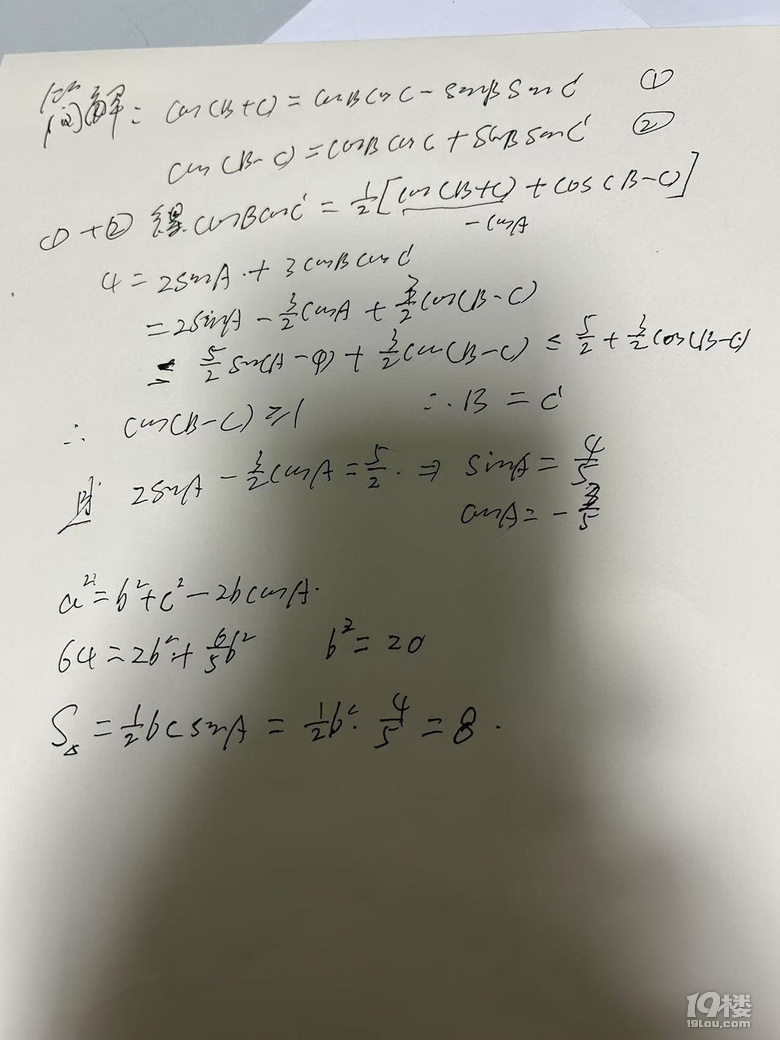 简解: cos(B+C) = cosBcosC - sinBsinC ①
cos(B-C) = cosBcosC + sinBsinC ②
①+② 得 cosBcosC = 1/2[cos(B+C) + cos(B-C)]
-cosA
4 = 2sinA + 3cosBcosC
= 2sinA - 3/2cosA + 3/2cos(B-C)
≤ 5/2 sin(A-φ) + 3/2cos(B-C) ≤ 5/2 + 3/2cos(B-C)
∴ cos(B-C) ≥ 1 ∴ B = C
且 2sinA - 3/2cosA = 5/2 ⇒ sinA = 4/5
cosA = -3/5
a² = b² + c² - 2bcosA.
64 = 2b² + 6/5b² b² = 20
S△ = 1/2bcsinA = 1/2b²·4/5 = 8.
19楼
19lou.com